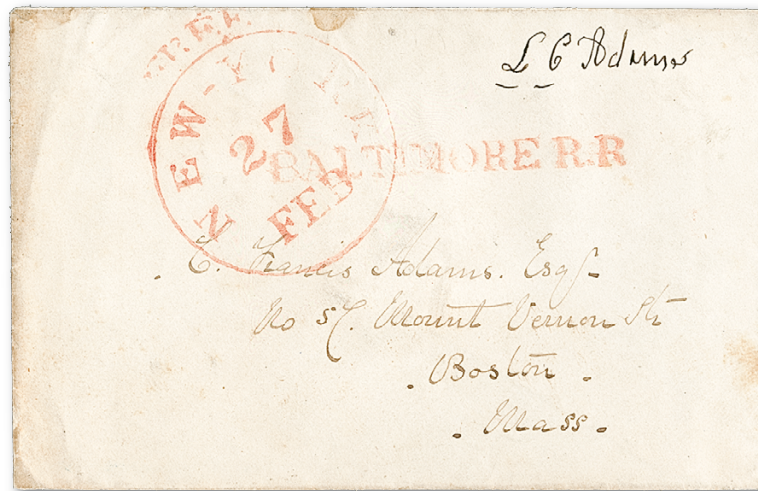 FREE
L C Adams
NEW-YORK
27
FEB
BALTIMORE R.R
C. Francis Adams. Esqr
No 57. Mount Vernon Str
. Boston .
. Mass .